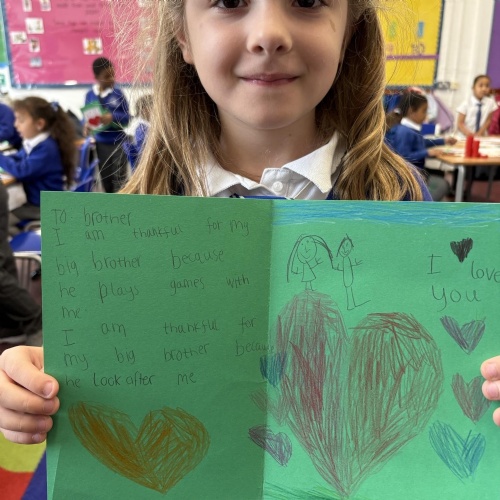 To brother
I am thankful for my
big brother because
he plays games with
me
I am thankful for
my big brother because
he look after me
I love
you